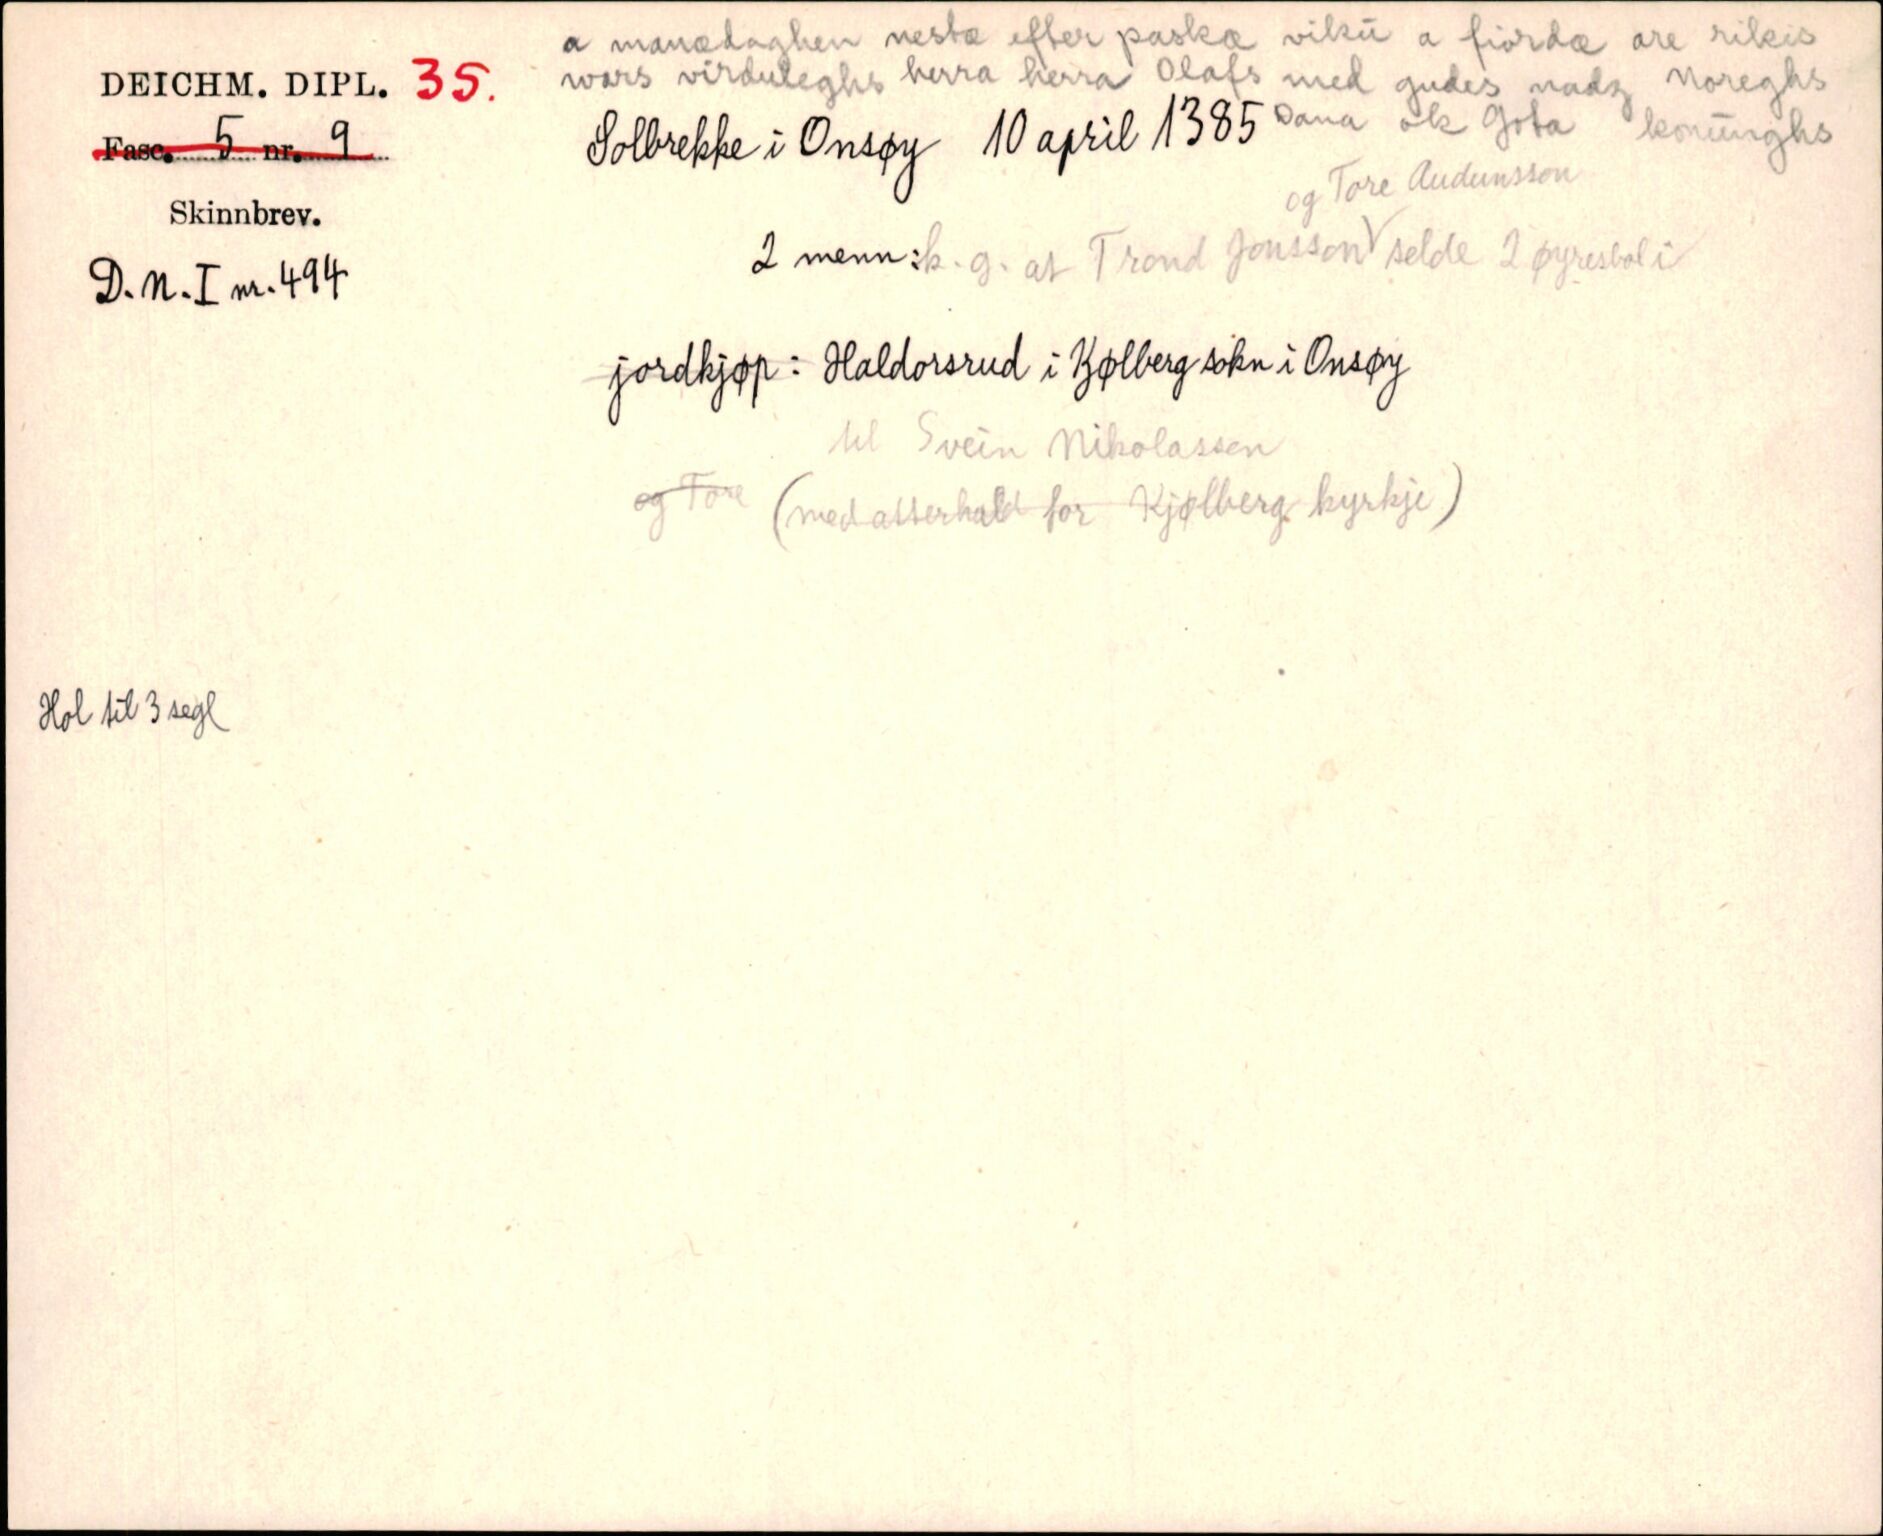 a manædaghen nesta efter paska viku a fiorda are rikis
wars virduleghs herra herra Olafs med gudes nadz Noreghs
Dana ok Gota konunghs
DEICHM. DIPL. 35.
Fasc. 5 nr. 9
Solbrekke i Onsøy 10 april 1385
Skinnbrev.
og Tore Audunsson
2 menn: k. g. at Trond Jonsson V selde 2 øyresbol i
D. N. I nr. 494
jordkjøp: Haldorsrud i Kjølberg sokn i Onsøy
til Svein Nikolassen
og Tore (med atterhald for Kjølberg kyrkje)
Hol til 3 segl